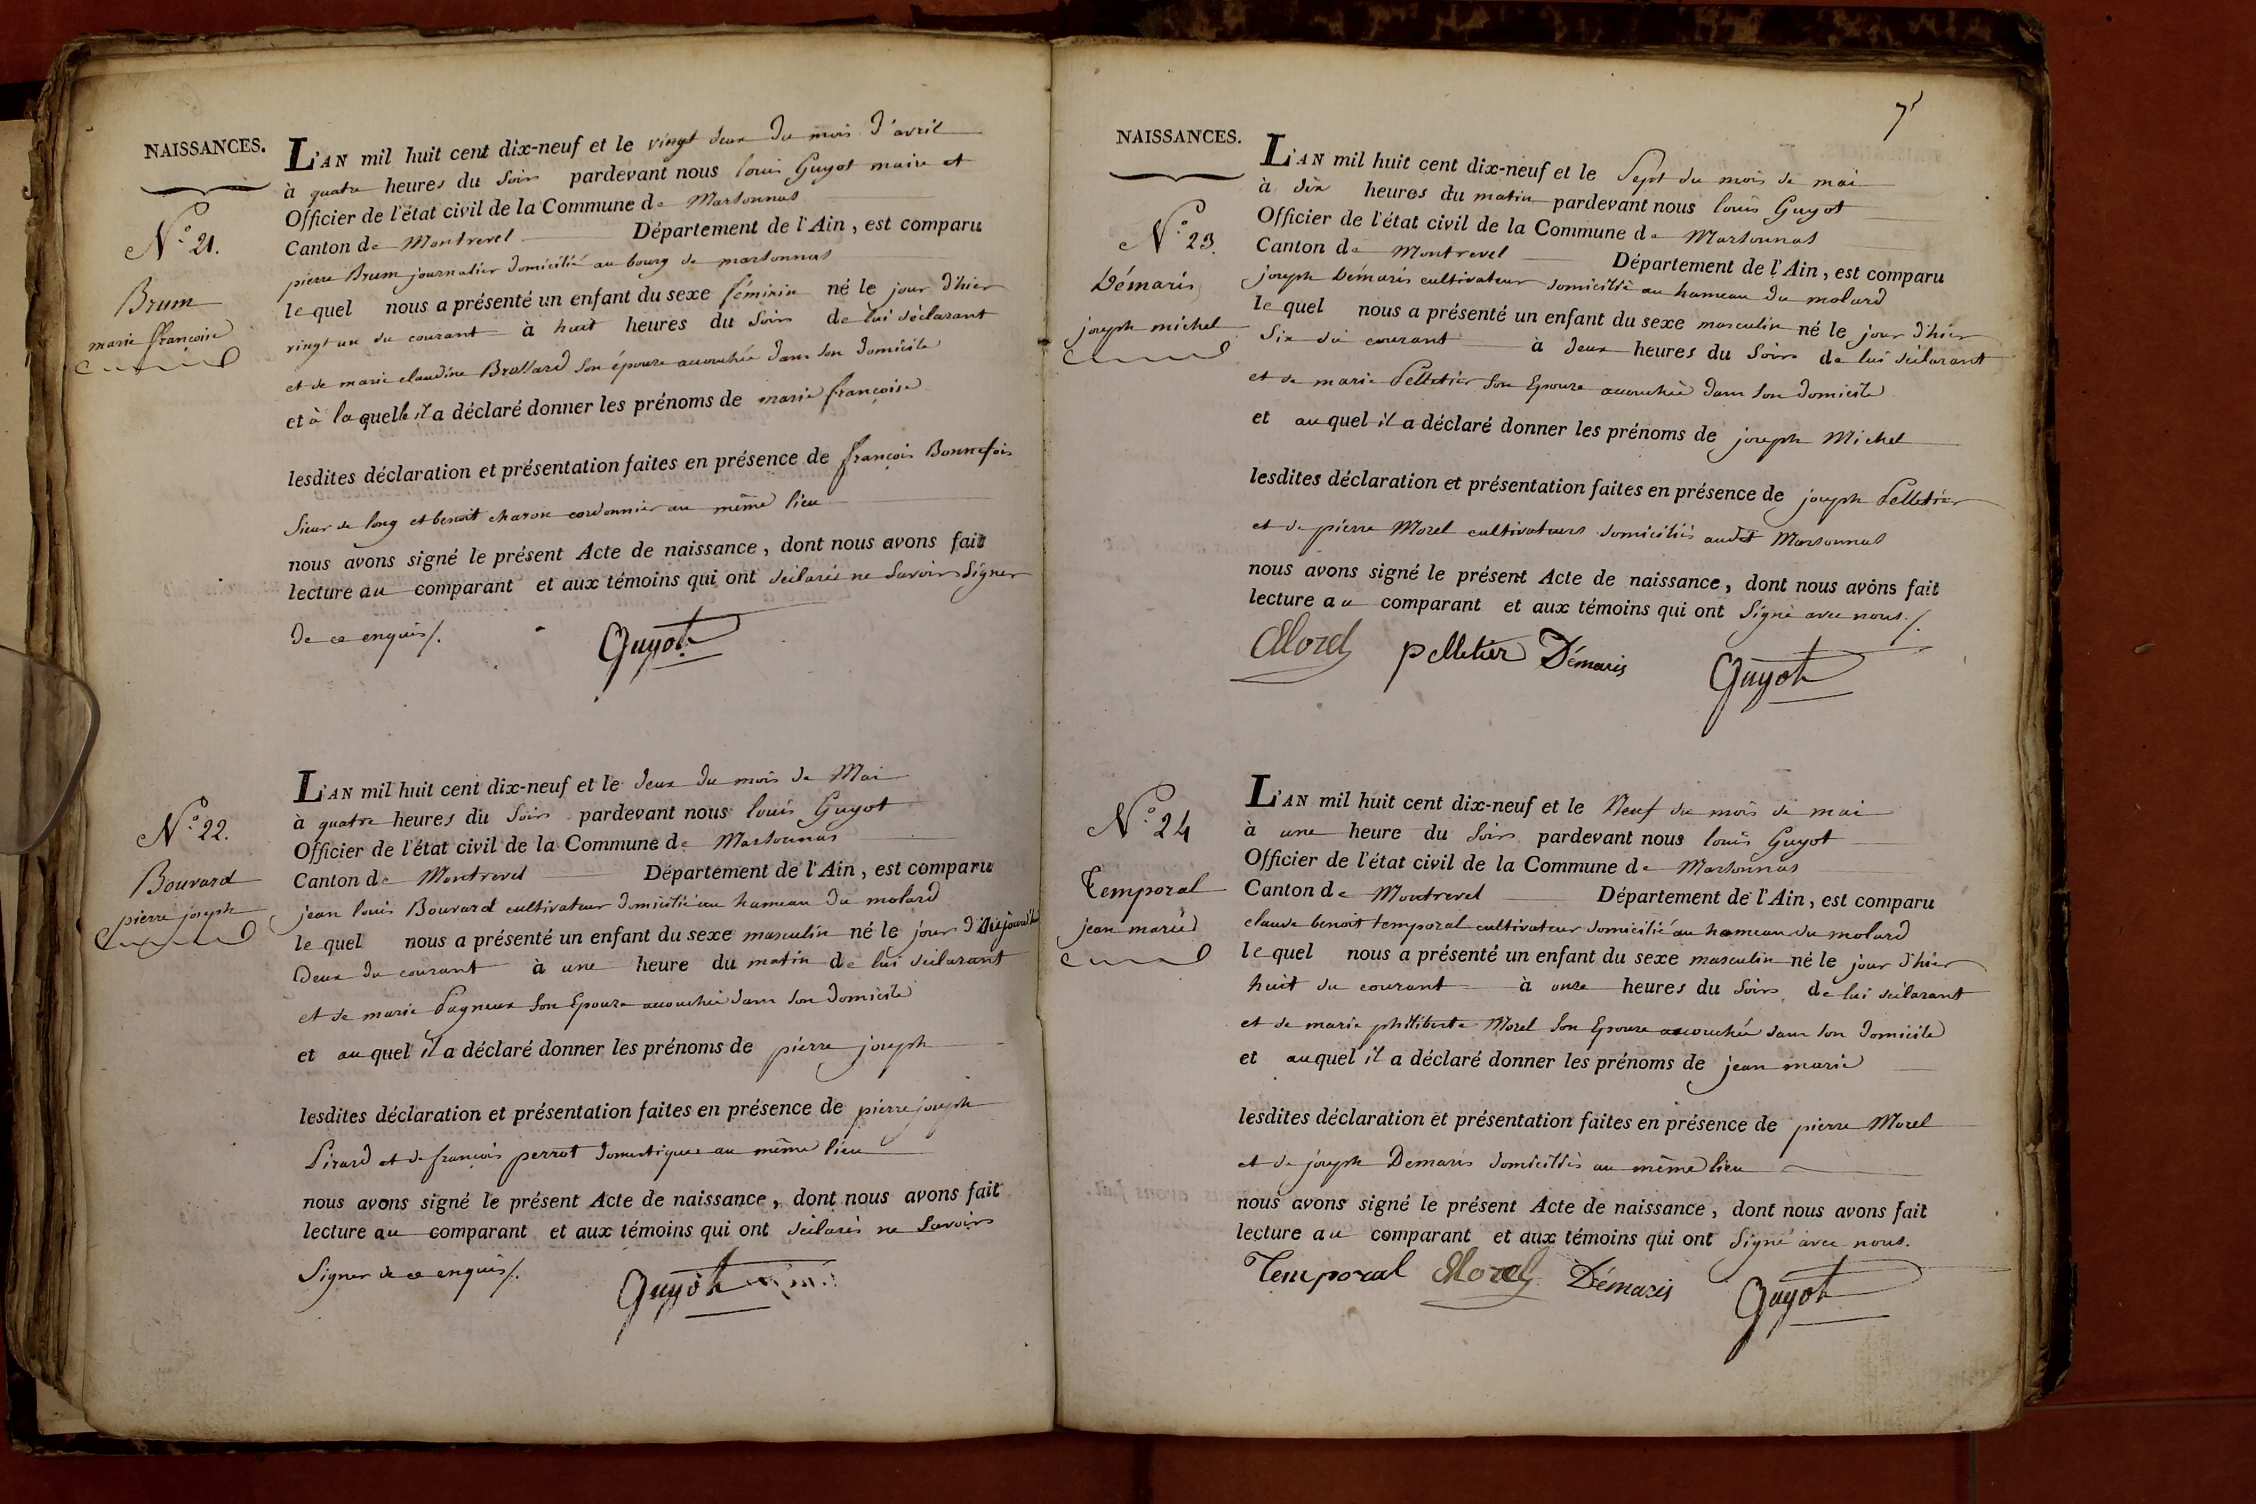 NAISSANCES.
N.º 21.
Brum
marie françoise
L'AN mil huit cent dix-neuf et le vingt deux du mois d'avril
à quatre heures du soir pardevant nous louis Guyot maire et
Officier de l'état civil de la Commune de Marsonnas
Canton de Montrevel Département de l'Ain, est comparu
pierre Brum journalier domicilié au bourg de marsonnas
le quel nous a présenté un enfant du sexe féminin né le jour d'hier
vingt un du courant à huit heures du soir de lui déclarant
et de marie claudine Brossard son épouse accouchée dans son domicile
et à laquelle il a déclaré donner les prénoms de marie françoise
lesdites déclaration et présentation faites en présence de françois Bonnefois
sieur de long et benoit charon cordonnier au même lieu
nous avons signé le présent Acte de naissance, dont nous avons fait
lecture au comparant et aux témoins qui ont déclarés ne savoir signer
de ce enquis/.
Guyot
N.º 22.
Bouvard
pierre joseph
L'AN mil huit cent dix-neuf et le deux du mois de Mai
à quatre heures du soir pardevant nous louis Guyot
Officier de l'état civil de la Commune de Marsonnas
Canton de Montrevel Département de l'Ain, est comparu
jean louis Bouvard cultivateur domicilié au hameau du molard
le quel nous a présenté un enfant du sexe masculin né le jour d'Aujourd'hui
Deux du courant à une heure du matin de lui déclarant
et de marie Pagneux son Epouse accouchée dans son domicile
et au quel il a déclaré donner les prénoms de pierre joseph
lesdites déclaration et présentation faites en présence de pierre joseph
Pirard et de françois perrot domestiques au même lieu
nous avons signé le présent Acte de naissance, dont nous avons fait
lecture au comparant et aux témoins qui ont déclarés ne savoir
Signer de ce enquis/.
Guyot
7
NAISSANCES.
N.º 23.
Démaris
joseph michel
L'AN mil huit cent dix-neuf et le Sept du mois de mai
à dix heures du matin pardevant nous louis Guyot
Officier de l'état civil de la Commune de Marsonnas
Canton de Montrevel Département de l'Ain, est comparu
joseph Démaris cultivateur domicilié au hameau du molard
le quel nous a présenté un enfant du sexe masculin né le jour d'hier
Six du courant à deux heures du soir de lui déclarant
et de marie Pelletier son Epouse accouchée dans son domicile
et au quel il a déclaré donner les prénoms de joseph Michel
lesdites déclaration et présentation faites en présence de joseph Pelletier
et de pierre Morel cultivateurs domiciliés audit Marsonnas
nous avons signé le présent Acte de naissance, dont nous avons fait
lecture au comparant et aux témoins qui ont Signé avec nous./.
Morel pelletier Démaris Guyot
N.º 24
Temporal
jean marie
L'AN mil huit cent dix-neuf et le Neuf du mois de mai
à une heure du soir pardevant nous louis Guyot
Officier de l'état civil de la Commune de Marsonnas
Canton de Montrevel Département de l'Ain, est comparu
claude benoit temporal cultivateur domicilié au hameau du molard
le quel nous a présenté un enfant du sexe masculin né le jour d'hier
huit du courant à onze heures du soir de lui déclarant
et de marie philiberte Morel son Epouse accouchée dans son domicile
et auquel il a déclaré donner les prénoms de jean marie
lesdites déclaration et présentation faites en présence de pierre Morel
et de joseph Demaris domiciliés au même lieu
nous avons signé le présent Acte de naissance, dont nous avons fait
lecture au comparant et aux témoins qui ont Signé avec nous.
Temporal Morel Démaris Guyot